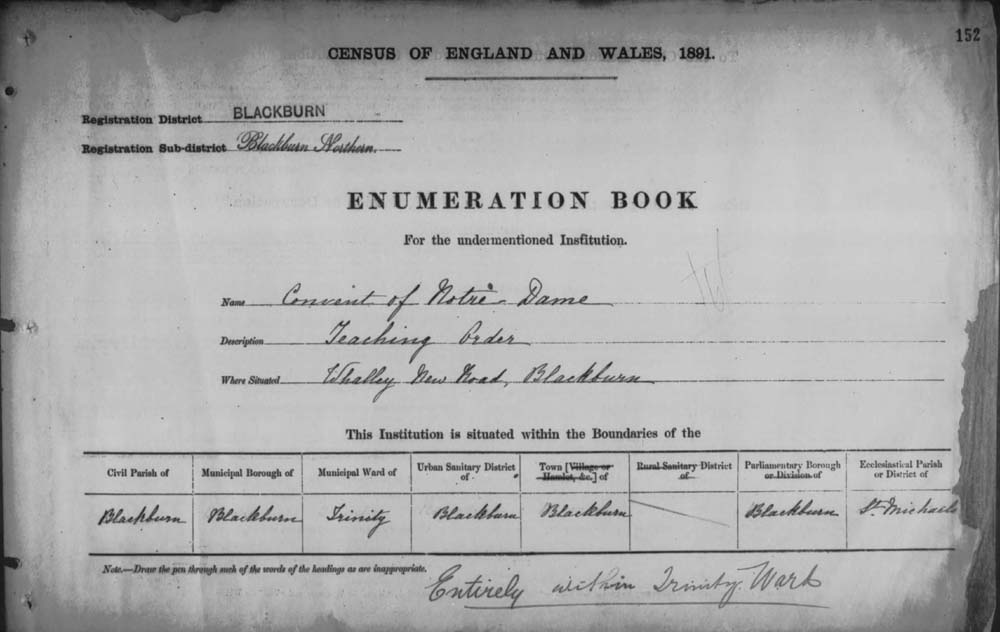 152
CENSUS OF ENGLAND AND WALES, 1891.
Registration District BLACKBURN
Registration Sub-district Blackburn Northern.
ENUMERATION BOOK
For the undermentioned Institution.
Name Convent of Notre Dame
Description Teaching Order
Where Situated Whalley New Road, Blackburn
This Institution is situated within the Boundaries of the
Civil Parish of Municipal Borough of Municipal Ward of Urban Sanitary District of Town [Village or Hamlet, &c.] of Rural Sanitary District of Parliamentary Borough or Division of Ecclesiastical Parish or District of
Blackburn Blackburn Trinity Blackburn Blackburn Blackburn St Michaels
Note.—Draw the pen through such of the words of the headings as are inappropriate.
Entirely within Trinity Ward